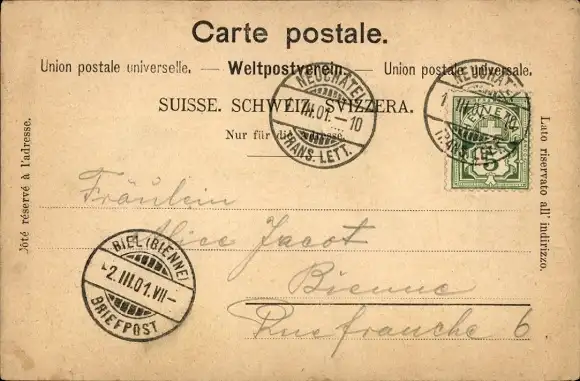 Carte postale.
Union postale universelle. — Weltpostverein — Union postale universale.
SUISSE. SCHWEIZ. SVIZZERA.
Nur für die Adresse.
Côté réservé à l'adresse.
Lato riservato all' indirizzo.
NEUCHÂTEL
1.III.01.–10
TRANS. LETT.
NEUCHÂTEL
HELVETIA
5
Fräulein
Alice Jacot
Bienne
Rue franche 6
BIEL (BIENNE)
2.III.01.VII–
BRIEFPOST